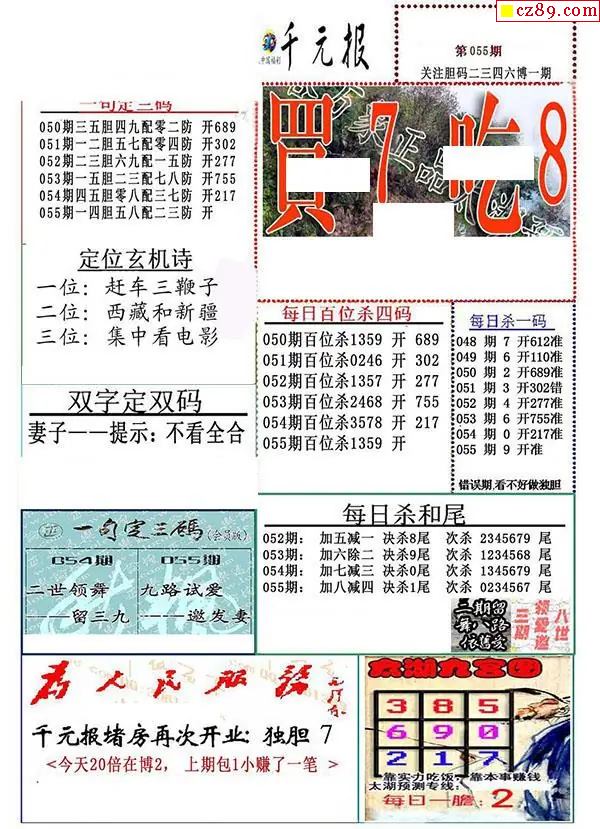 cz89.com
中国福彩
千元报
第055期
关注胆码二三四六博一期
一句定三码
050期三五胆四九配零二防 开689
051期一二胆五七配零四防 开302
052期二三胆六九配一五防 开277
053期一五胆二三配七八防 开755
054期四五胆零八配三七防 开217
055期一四胆五八配二三防 开
買 7 吃 8
定位玄机诗
一位：赶车三鞭子
二位：西藏和新疆
三位：集中看电影
每日百位杀四码
050期百位杀1359 开 689
051期百位杀0246 开 302
052期百位杀1357 开 277
053期百位杀2468 开 755
054期百位杀3578 开 217
055期百位杀1359 开
每日杀一码
048 期 7 开612准
049 期 6 开110准
050 期 2 开689准
051 期 3 开302错
052 期 4 开277准
053 期 6 开755准
054 期 0 开217准
055 期 9 开准
错误期,看不好做独胆
双字定双码
妻子——提示：不看全合
每日杀和尾
052期： 加五减一 决杀8尾 次杀 2345679 尾
053期： 加六除二 决杀9尾 次杀 1234568 尾
054期： 加七减三 决杀0尾 次杀 1345679 尾
055期： 加八减四 决杀1尾 次杀 0234567 尾
一句定三碼(会员版)
054期 055期
二世领舞 九路试爱
——留三九 ——邀发妻
為人民服務
千元报堵房再次开业：独胆 7
<今天20倍在博2， 上期包1小赚了一笔 >
太湖九宫图
3 8 5
6 9 0
2 1 7
靠实力吃饭，靠本事赚钱
太湖预测专线：
每日一胆：2